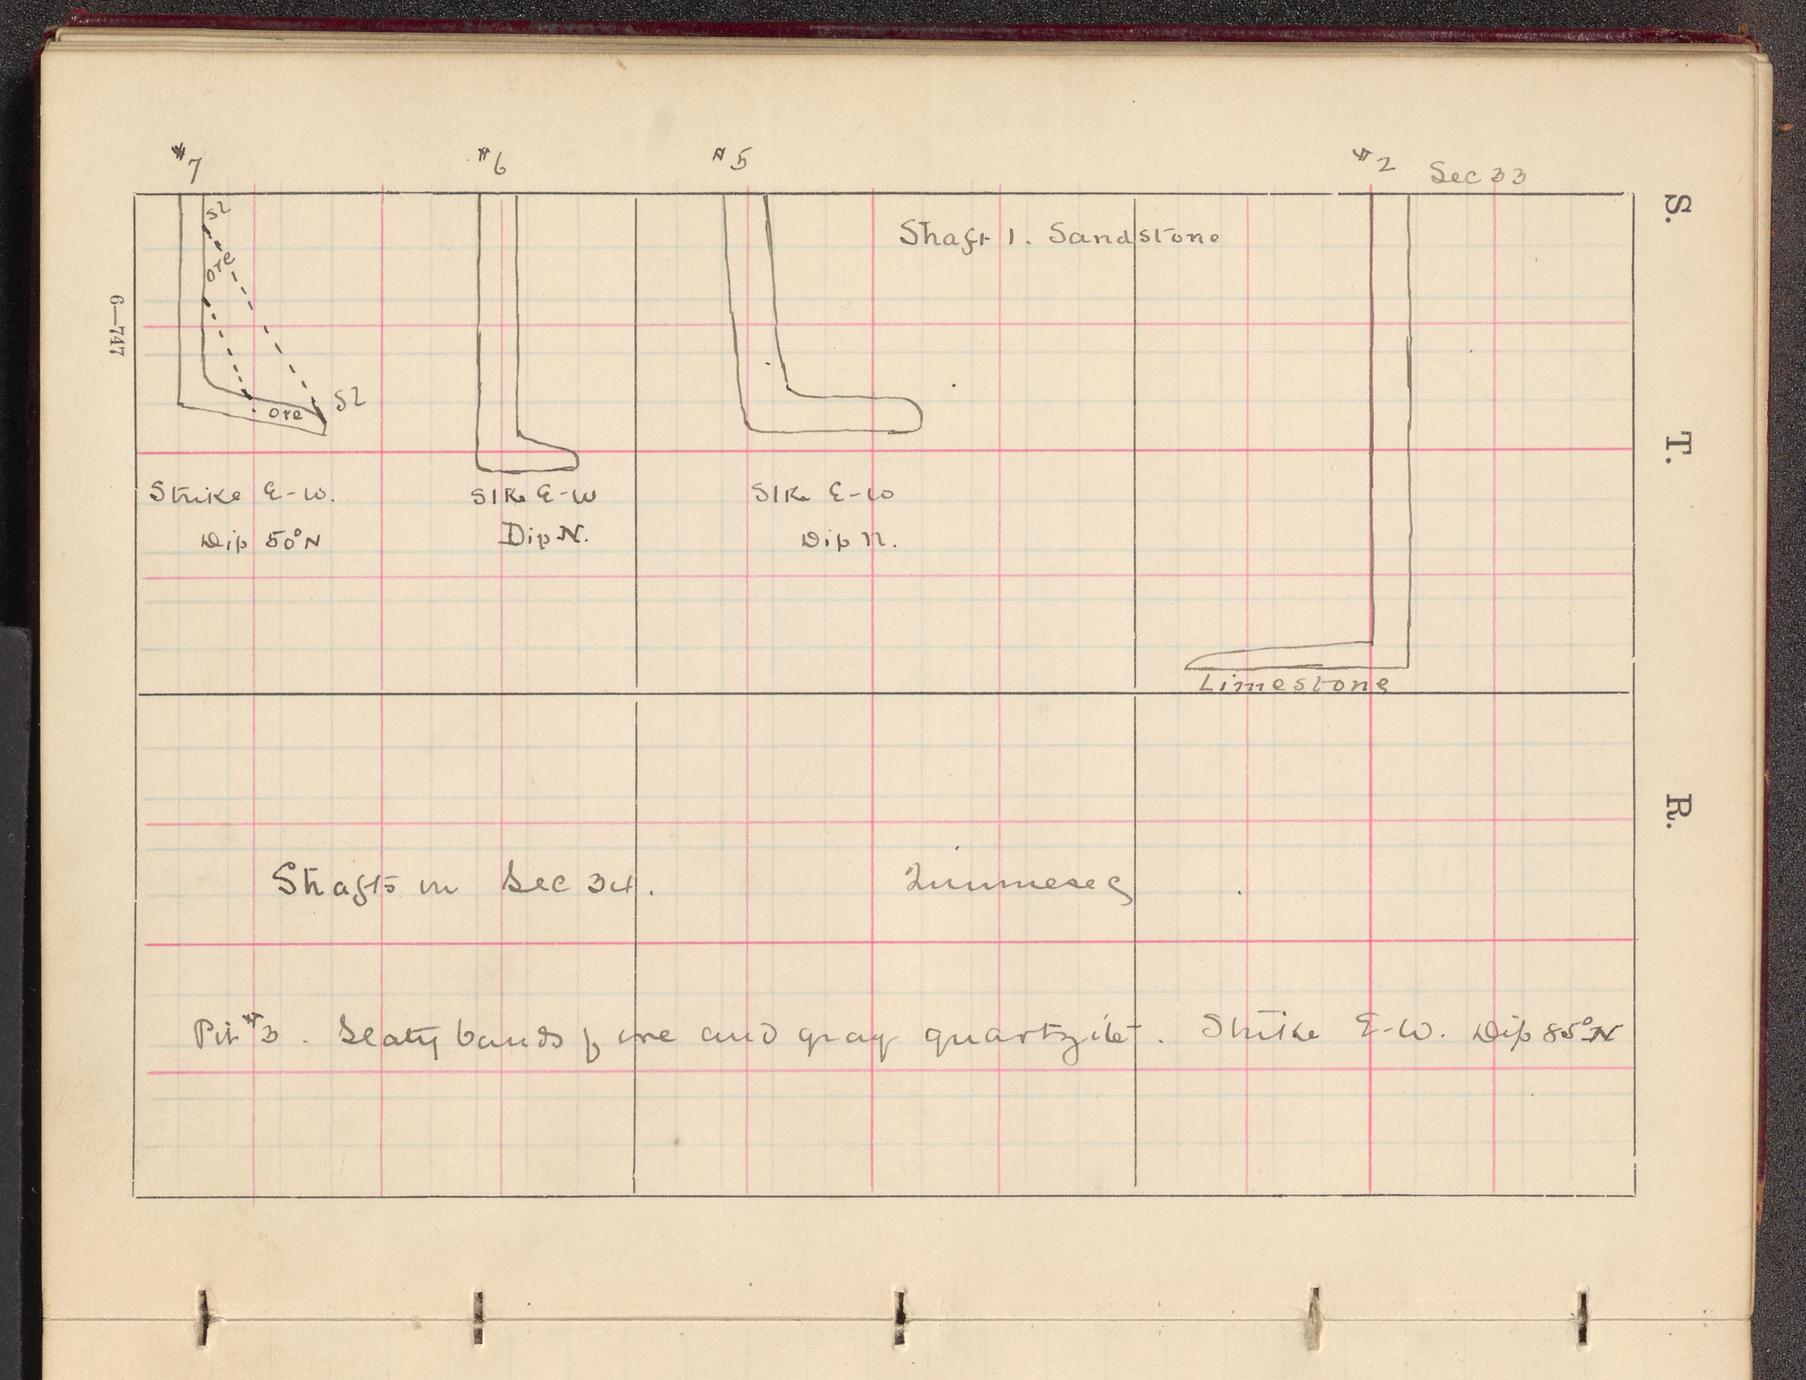 #7 #6 #5 #2 Sec 33
S.
Sl
Shaft 1. Sandstone
ore
6—747
Sl
ore
T.
Strike E-W. Stke E-W Stke E-W
Dip 50° N Dip N. Dip N.
Limestone
R.
Shafts in Sec 34. Quinnesec
Pit #3. Slaty bands of ore and gray quartzite. Strike E-W. Dip 85° N